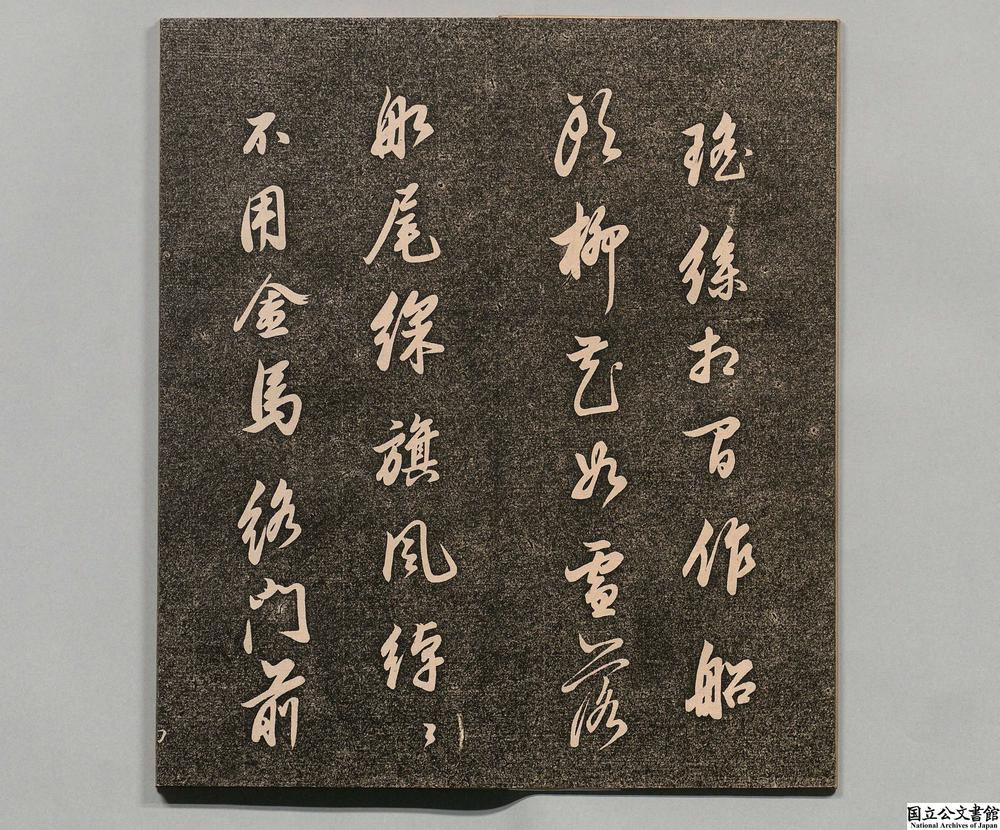 瑤絲相留作船
頭柳花如雪落
船尾綵旗風綽々
不用金馬絡門前
国立公文書館
National Archives of Japan